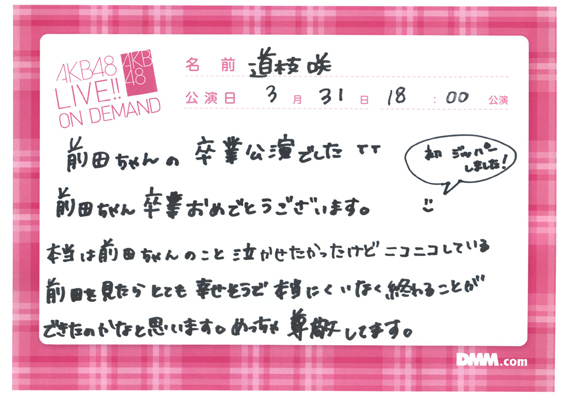 AKB48
LIVE!!
ON DEMAND
AKB
48
名 前 道枝 咲
公演日 3 月 31 日 18 : 00 公演
前田ちゃんの 卒業公演でした TT
初 ジッパー
しました!
前田ちゃん 卒業おめでとうございます。
本当は前田ちゃんのこと泣かせたかったけど ニコニコしている
前田を見たら とても 幸せそうで 本当にくいなく終わることが
できたのかなと思います。めっちゃ 尊敬してます。
DMM.com